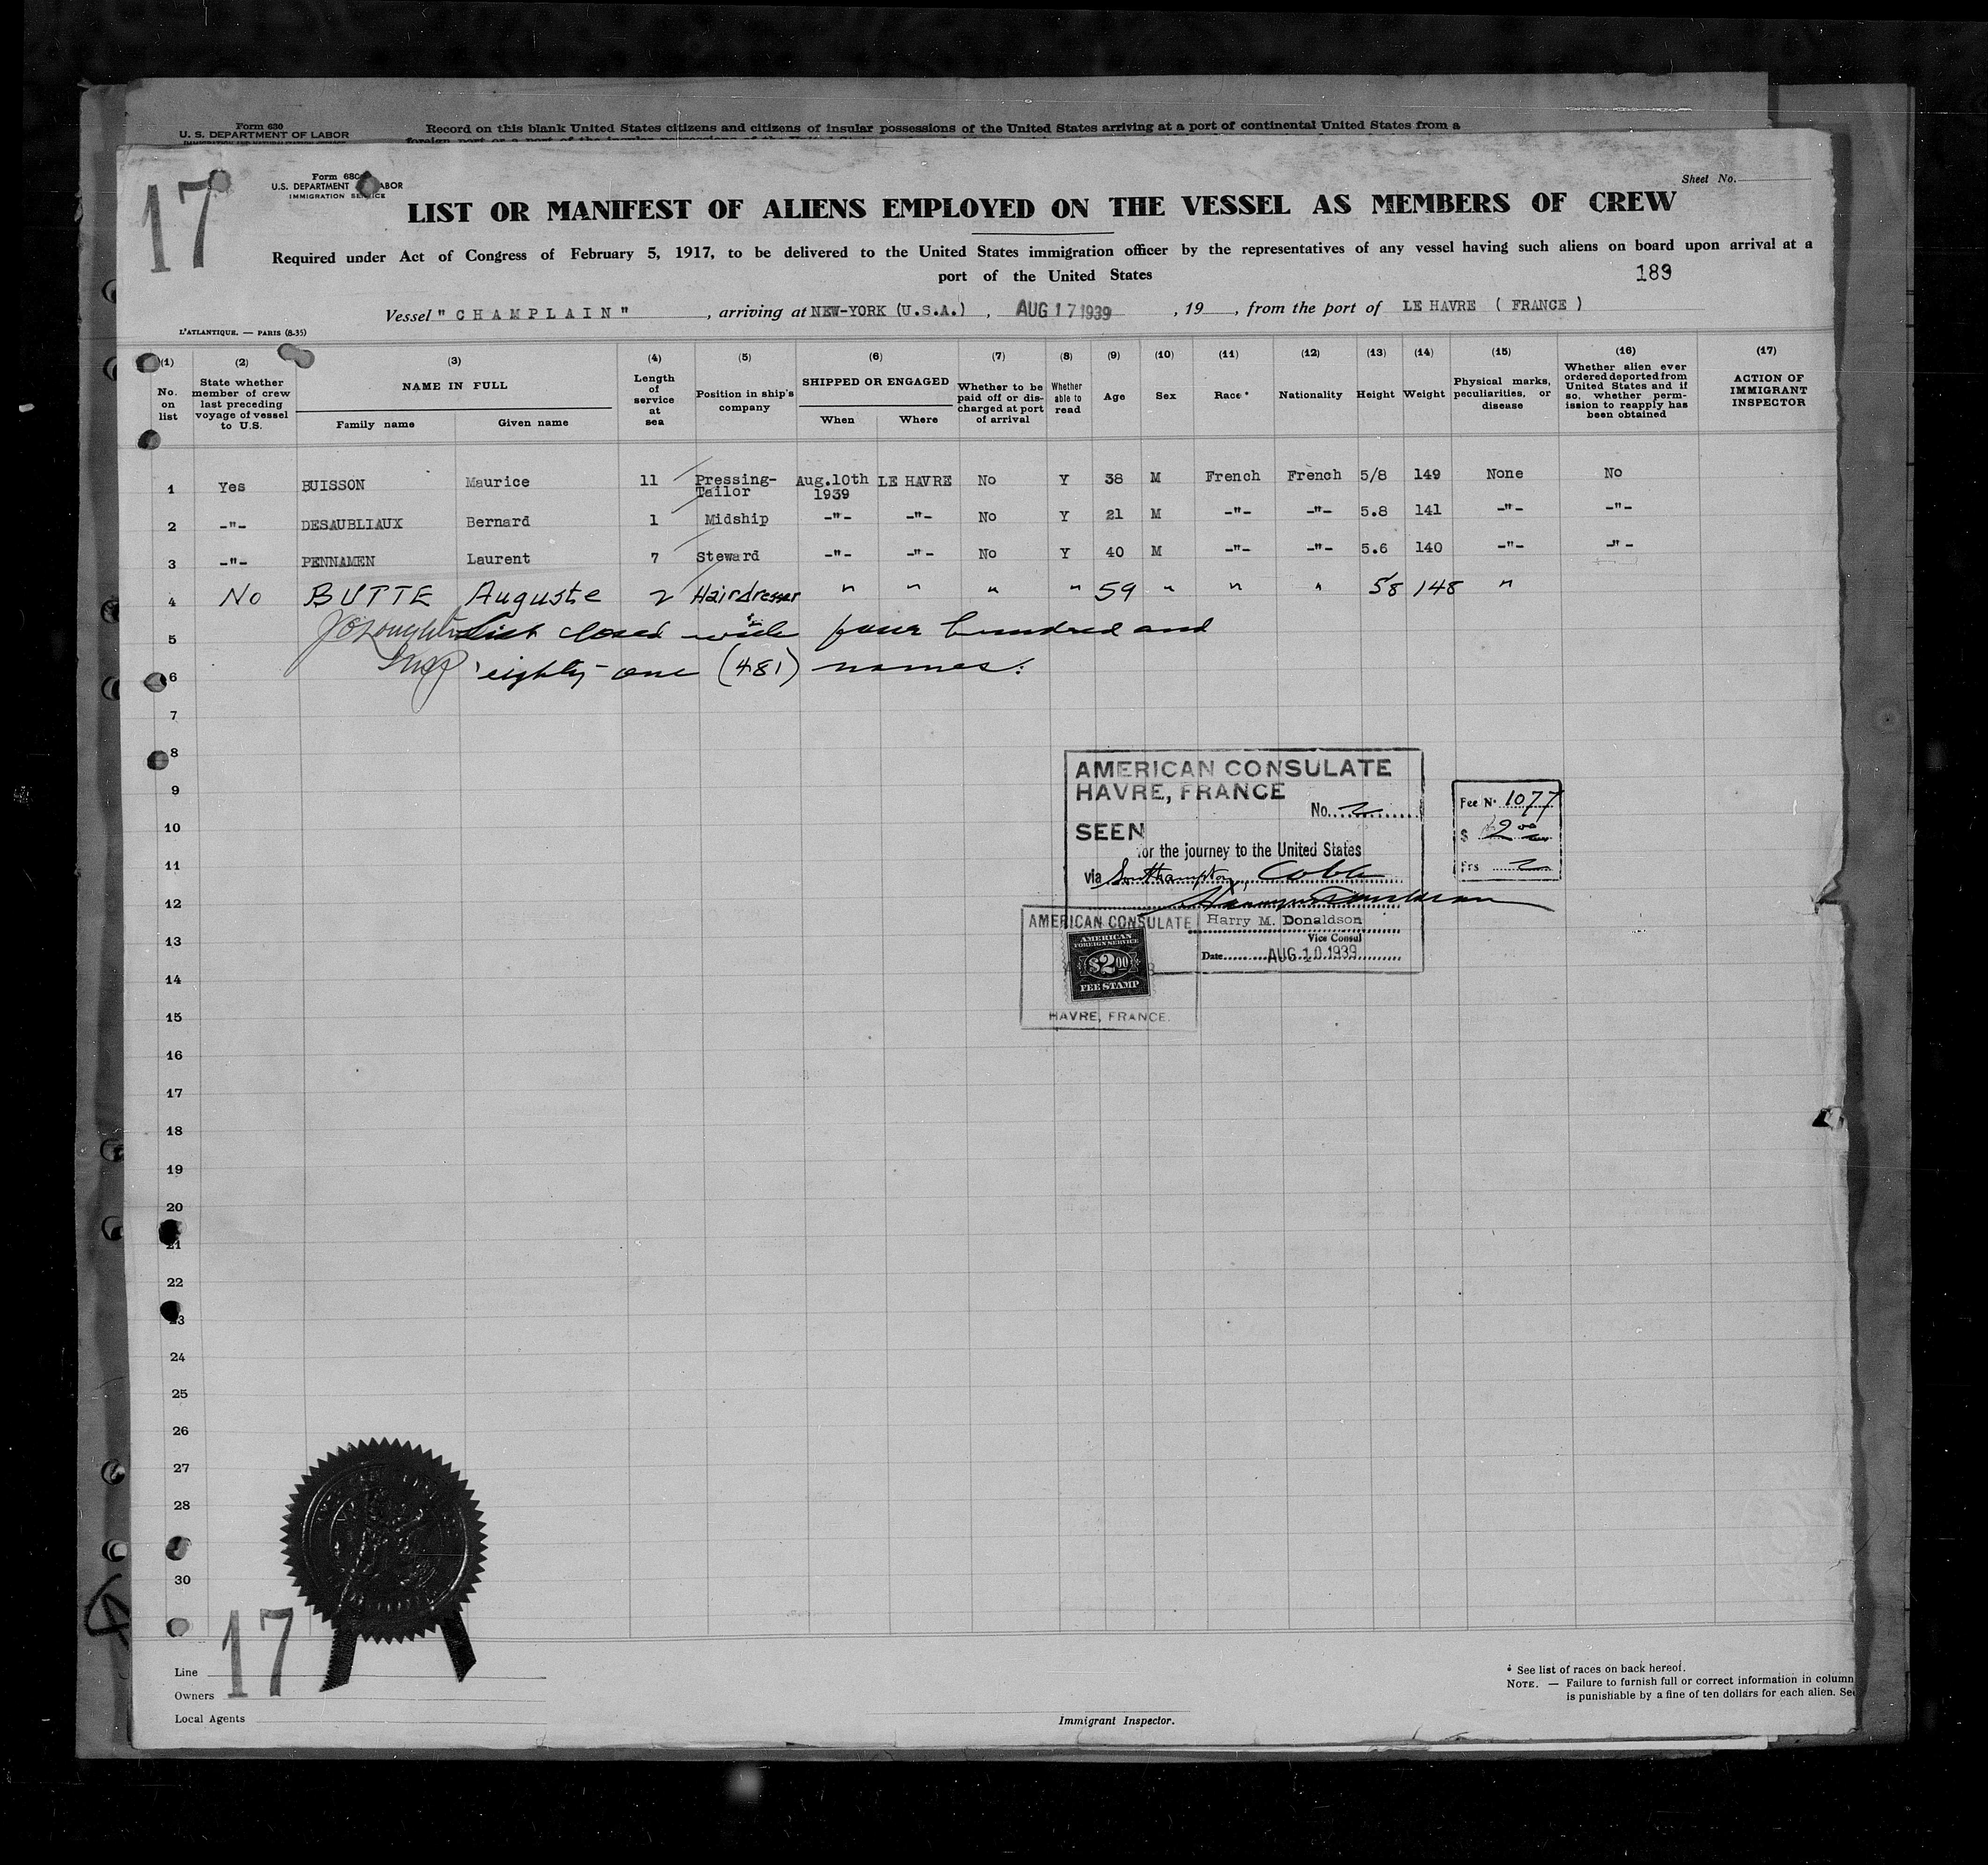 Form 630
U. S. DEPARTMENT OF LABOR
IMMIGRATION AND NATURALIZATION SERVICE
Record on this blank United States citizens and citizens of insular possessions of the United States arriving at a port of continental United States from a
17
Form 680
U.S. DEPARTMENT LABOR
IMMIGRATION SERVICE
Sheet No.
LIST OR MANIFEST OF ALIENS EMPLOYED ON THE VESSEL AS MEMBERS OF CREW
Required under Act of Congress of February 5, 1917, to be delivered to the United States immigration officer by the representatives of any vessel having such aliens on board upon arrival at a
port of the United States
189
Vessel " CHAMPLAIN " , arriving at NEW-YORK (U.S.A.) , AUG 17 1939 , 19 , from the port of LE HAVRE ( FRANCE )
L'ATLANTIQUE. — PARIS (8-35)
(1) (2) (3) (4) (5) (6) (7) (8) (9) (10) (11) (12) (13) (14) (15) (16) (17)
No. on list
State whether member of crew last preceding voyage of vessel to U.S.
NAME IN FULL
Family name
Given name
Length of service at sea
Position in ship's company
SHIPPED OR ENGAGED
When
Where
Whether to be paid off or discharged at port of arrival
Whether able to read
Age
Sex
Race *
Nationality
Height
Weight
Physical marks, peculiarities, or disease
Whether alien ever ordered deported from United States and if so, whether permission to reapply has been obtained
ACTION OF IMMIGRANT INSPECTOR
1 Yes BUISSON Maurice 11 Pressing-Tailor Aug.10th 1939 LE HAVRE No Y 38 M French French 5/8 149 None No
2 -"- DESAUBLIAUX Bernard 1 Midship -"- -"- No Y 21 M -"- -"- 5.8 141 -"- -"-
3 -"- PENNAMEN Laurent 7 Steward -"- -"- No Y 40 M -"- -"- 5.6 140 -"- -"-
4 No BUTTE Auguste 2 Hairdresser " " " " 59 " " " 5/8 148 "
5 List closed with four hundred and
6 eighty-one (481) names.
7
8
9
10
11
12
13
14
15
16
17
18
19
20
21
22
23
24
25
26
27
28
30
AMERICAN CONSULATE
HAVRE, FRANCE
No.
SEEN
for the journey to the United States
via Southampton, Cobh
Harry M. Donaldson
Vice Consul
Date AUG 10 1939
Fee No. 1077
$ 2.00
Frs
AMERICAN CONSULATE
AMERICAN
FOREIGN SERVICE
$2.00
FEE STAMP
HAVRE, FRANCE.
17
Line
Owners
Local Agents
Immigrant Inspector.
* See list of races on back hereof.
NOTE. — Failure to furnish full or correct information in column
is punishable by a fine of ten dollars for each alien. See